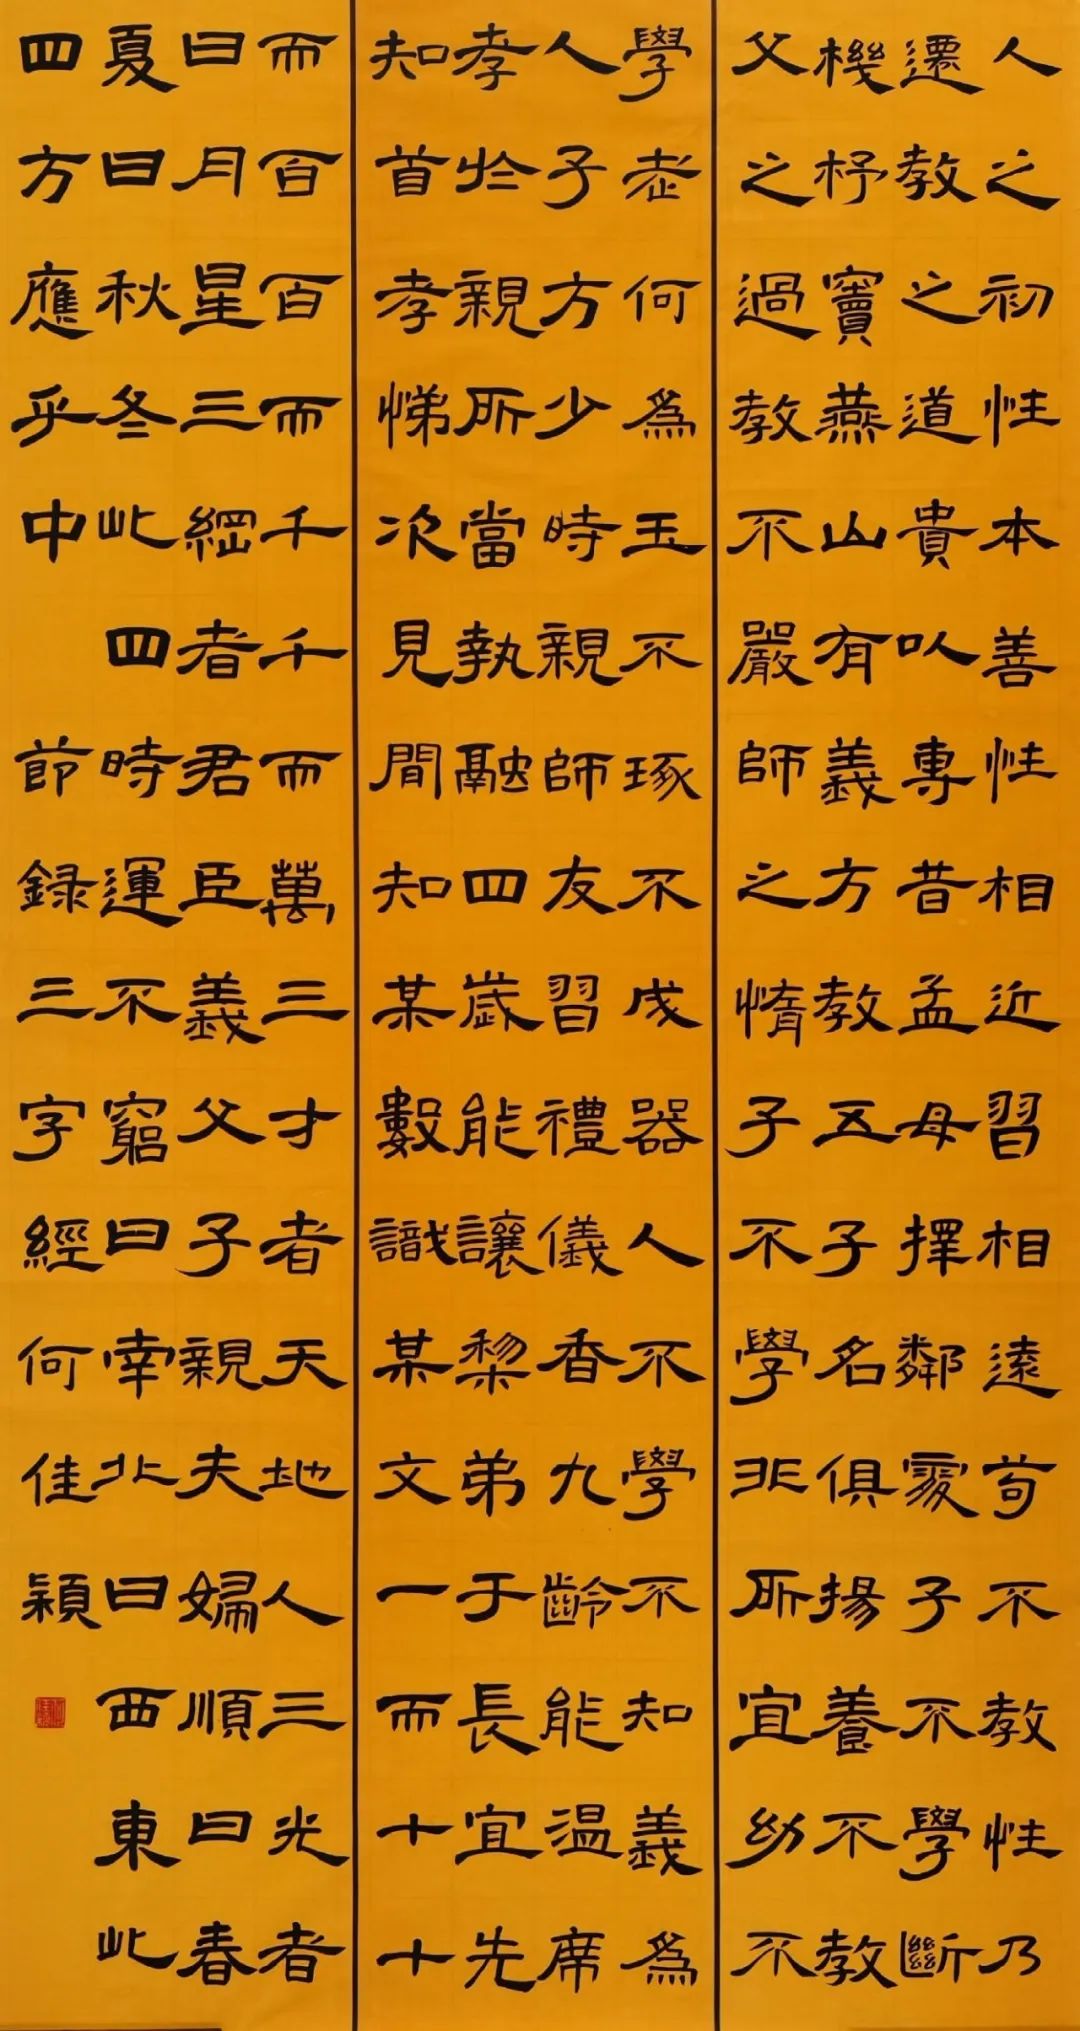 人之初性本善性相近習相遠苟不教性乃
遷教之道貴以專昔孟母擇鄰處子不學斷
機杼竇燕山有義方教五子名俱揚養不教
父之過教不嚴師之惰子不學非所宜幼不
學老何爲玉不琢不成器人不學不知義爲
人子方少時親師友習禮儀香九齡能温席
孝於親所當執融四歲能讓棃弟于長宜先
知首孝悌次見間知某數識某文一而十十
而百百而千千而萬三才者天地人三光者
日月星三綱者君臣義父子親夫婦順曰春
夏曰秋冬此四時運不窮曰南北曰西東此
四方應乎中 節録三字經何佳穎